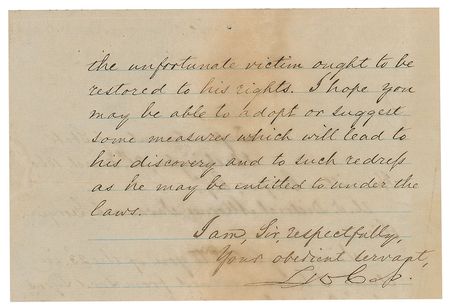 the unfortunate victim ought to be
restored to his rights. I hope you
may be able to adopt or suggest
some measures which will lead to
his discovery and to such redress
as he may be entitled to under the
laws.
I am, Sir, respectfully,
Your obedient servant,